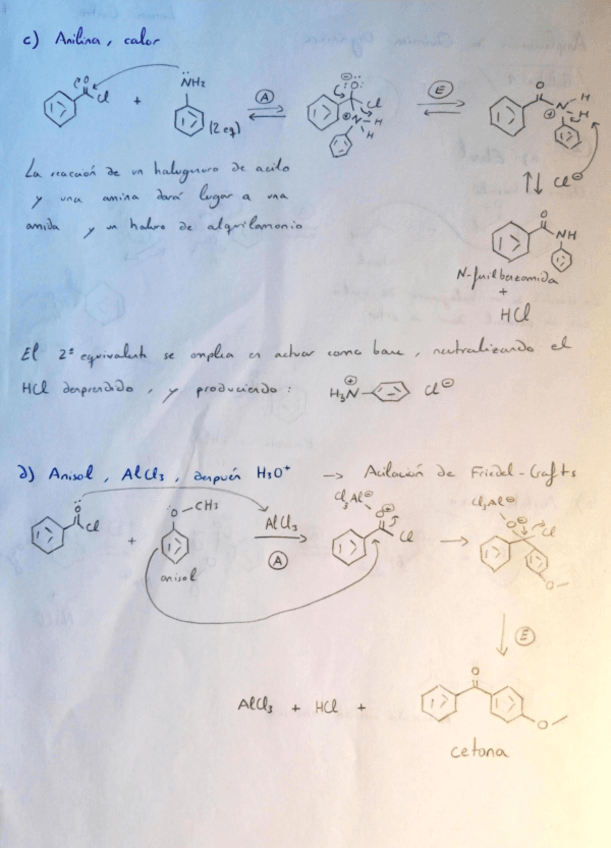 c) Anilina, calor
O Cl + NH2 (2 eq) A O Cl N H H E O N H H
Cl
La reacción de un halogenuro de acilo
y una amina dará lugar a una
amida y un haluro de alquilamonio
O NH
N-fenilbenzamida
+
HCl
El 2º equivalente se emplea en actuar como base, neutralizando el
HCl desprendido, y produciendo: H3N Cl
d) Anisol, AlCl3, después H3O+ → Acilación de Friedel-Crafts
O Cl + O-CH3 AlCl3 A Cl3Al O Cl Cl3Al O Cl O
anisol
E
AlCl3 + HCl + O O
cetona